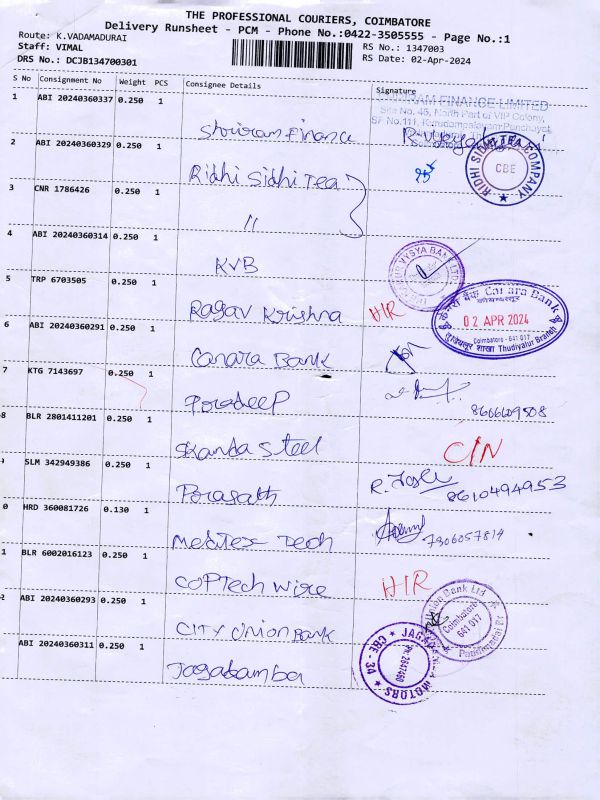 THE PROFESSIONAL COURIERS, COIMBATORE
Delivery Runsheet - PCM - Phone No.:0422-3505555 - Page No.:1
Route: K.VADAMADURAI
Staff: VIMAL
DRS No.: DCJB134700301
RS No.: 1347003
RS Date: 02-Apr-2024
S No Consignment No Weight PCS Consignee Details Signature
1 ABI 20240360337 0.250 1 Shriram Finance
FINANCE LIMITED
Site No. 45, North Part of VIP Colony,
2 ABI 20240360329 0.250 1 Ridhi Sidhi Tea
RIDHI SIDHI TEA COMPANY
CBE
3 CNR 1786426 0.250 1 "
4 ABI 20240360314 0.250 1 KVB
VYSYA BANK LTD
5 TRP 6703505 0.250 1 Ragav Krishna HIR
केनरा बैंक Canara Bank
02 APR 2024
Coimbatore - 641 017
शाखा Thudiyalur Branch
6 ABI 20240360291 0.250 1 Canara Bank
7 KTG 7143697 0.250 1 Pradeep
8606609508
8 BLR 2801411201 0.250 1 Skanda Steel C/N
SLM 342949386 0.250 1 Prasath
8610494953
0 HRD 360081726 0.130 1 Meditex Tech
7306057814
1 BLR 6002016123 0.250 1 Coptech Wire HIR
2 ABI 20240360293 0.250 1 City Union Bank
Bank Ltd
Coimbatore
641 017
ABI 20240360311 0.250 1 Jagadamba
MOTORS
CBE - 34